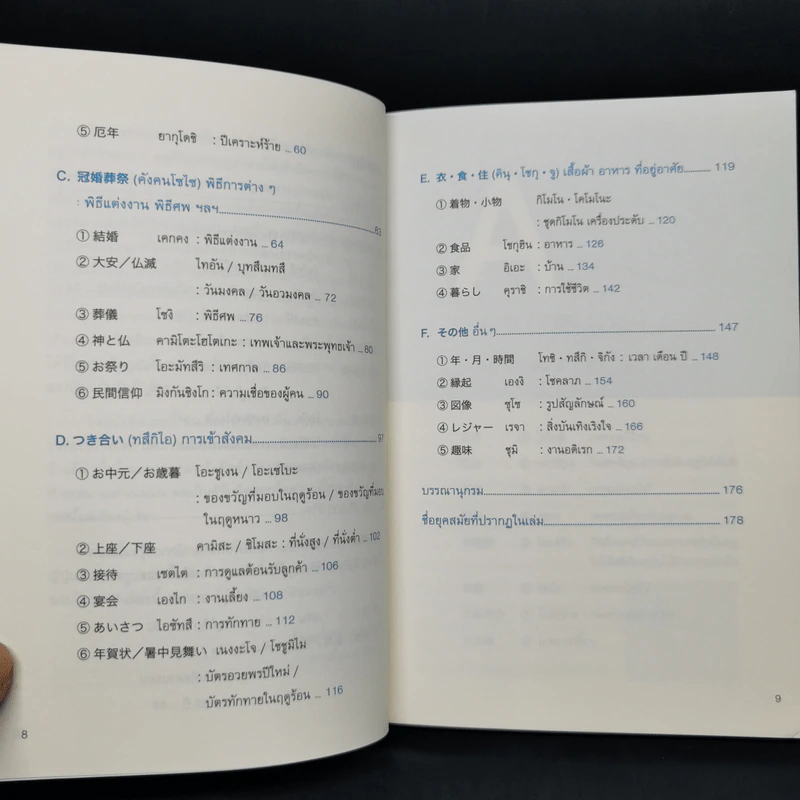 ⑤ 厄年 ยากุโดชิ : ปีเคราะห์ร้าย ... 60
C. 冠婚葬祭 (คังคนโซไซ) พิธีการต่าง ๆ
: พิธีแต่งงาน พิธีศพ ฯลฯ.......... 63
① 結婚 เคกคง : พิธีแต่งงาน ... 64
② 大安／仏滅 ไทอัน / บุทสึเมทสึ
: วันมงคล / วันอวมงคล ... 72
③ 葬儀 โซงิ : พิธีศพ ... 76
④ 神と仏 คามิโตะโฮโตเกะ : เทพเจ้าและพระพุทธเจ้า ... 80
⑤ お祭り โอะมัทสึริ : เทศกาล ... 86
⑥ 民間信仰 มิงกันชิงโก : ความเชื่อของผู้คน ... 90
D. つき合い (ทสึกิไอ) การเข้าสังคม.......... 97
① お中元／お歳暮 โอะชูเงน / โอะเซโบะ
: ของขวัญที่มอบในฤดูร้อน / ของขวัญที่มอบ
ในฤดูหนาว ... 98
② 上座／下座 คามิสะ / ชิโมสะ : ที่นั่งสูง / ที่นั่งต่ำ ... 102
③ 接待 เซตไต : การดูแลต้อนรับลูกค้า ... 106
④ 宴会 เองไก : งานเลี้ยง ... 108
⑤ あいさつ ไอซัทสึ : การทักทาย ... 112
⑥ 年賀状／暑中見舞い เนงงะโจ / โชชูมิไม
: บัตรอวยพรปีใหม่ /
บัตรทักทายในฤดูร้อน ... 116
8
E. 衣・食・住 (คินุ・โชกุ・จู) เสื้อผ้า อาหาร ที่อยู่อาศัย.......... 119
① 着物・小物 กิโมโน・โคโมโนะ
: ชุดกิโมโน เครื่องประดับ ... 120
② 食品 โชกุฮิน : อาหาร ... 126
③ 家 อิเอะ : บ้าน ... 134
④ 暮らし คุราชิ : การใช้ชีวิต ... 142
F. その他 อื่น ๆ.......... 147
① 年・月・時間 โทชิ・ทสึกิ・จิกัง : เวลา เดือน ปี ... 148
② 縁起 เองงิ : โชคลาภ ... 154
③ 図像 ซุโซ : รูปสัญลักษณ์ ... 160
④ レジャー เรจา : สิ่งบันเทิงเริงใจ ... 166
⑤ 趣味 ชุมิ : งานอดิเรก ... 172
บรรณานุกรม.......... 176
ชื่อยุคสมัยที่ปรากฏในเล่ม.......... 178
9